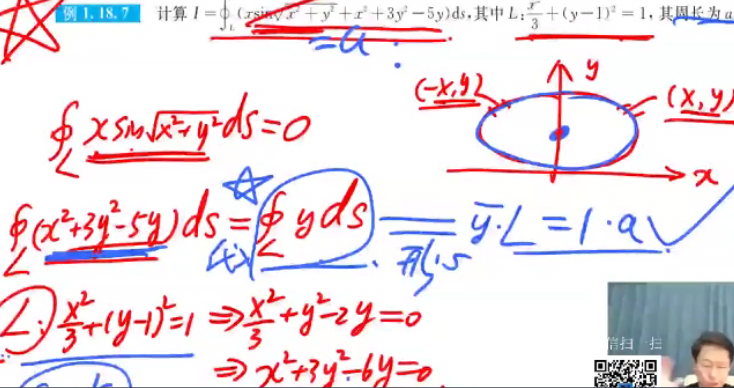 例 1.18.7 计算 I=∮_L (xsin√(x²+y²)+x²+3y²−5y)ds,其中 L:x²/3+(y−1)²=1,其周长为a
=a
(-x,y) y (x,y)
∮_L x sin√(x²+y²) ds=0
x
∮_L (x²+3y²-5y) ds = ∮_L y ds = ȳ·L = 1·a
形心
L: x²/3+(y-1)²=1 ⇒ x²/3+y²-2y=0
⇒ x²+3y²-6y=0
信扫一扫